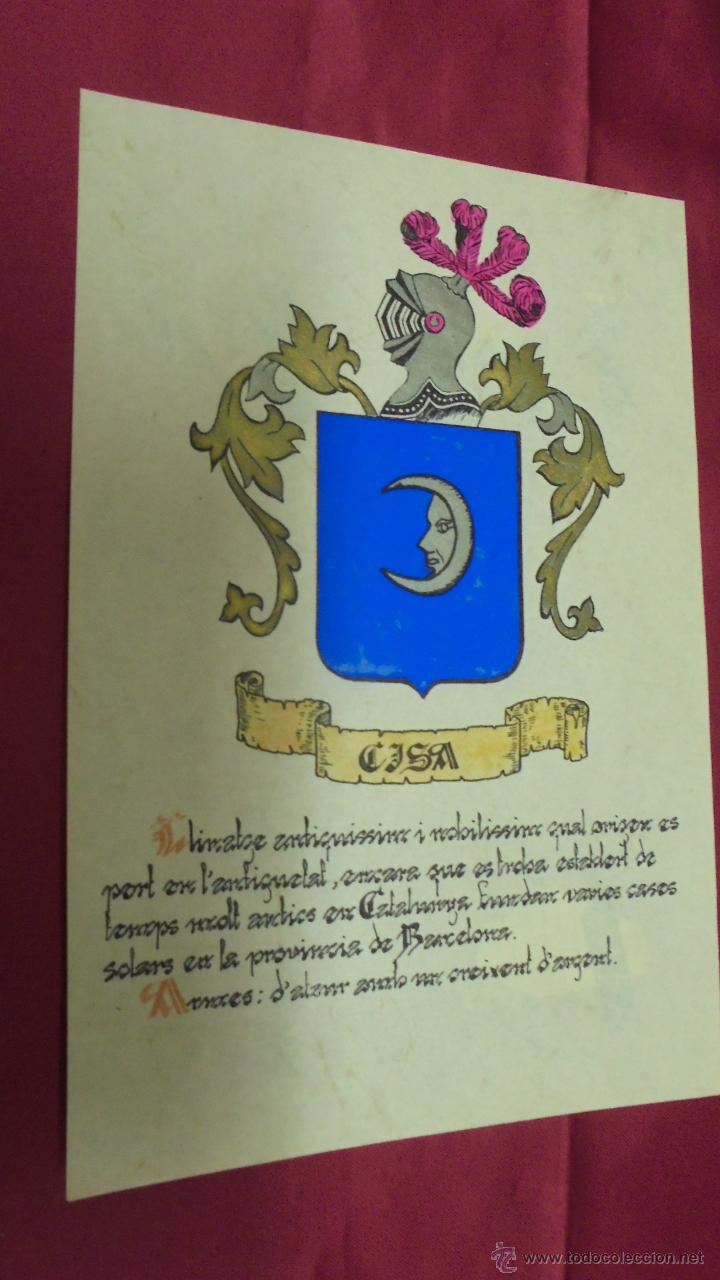 CISA
Llinatge antiquissim i nobilissim qual origen es
pert en l'antiguetat, encara que es troba establert de
temps molt antics en Catalunya fundan varies cases
solars en la provincia de Barcelona.
Armes: d'atzur amb un creixent d'argent.
TC www.todocoleccion.net